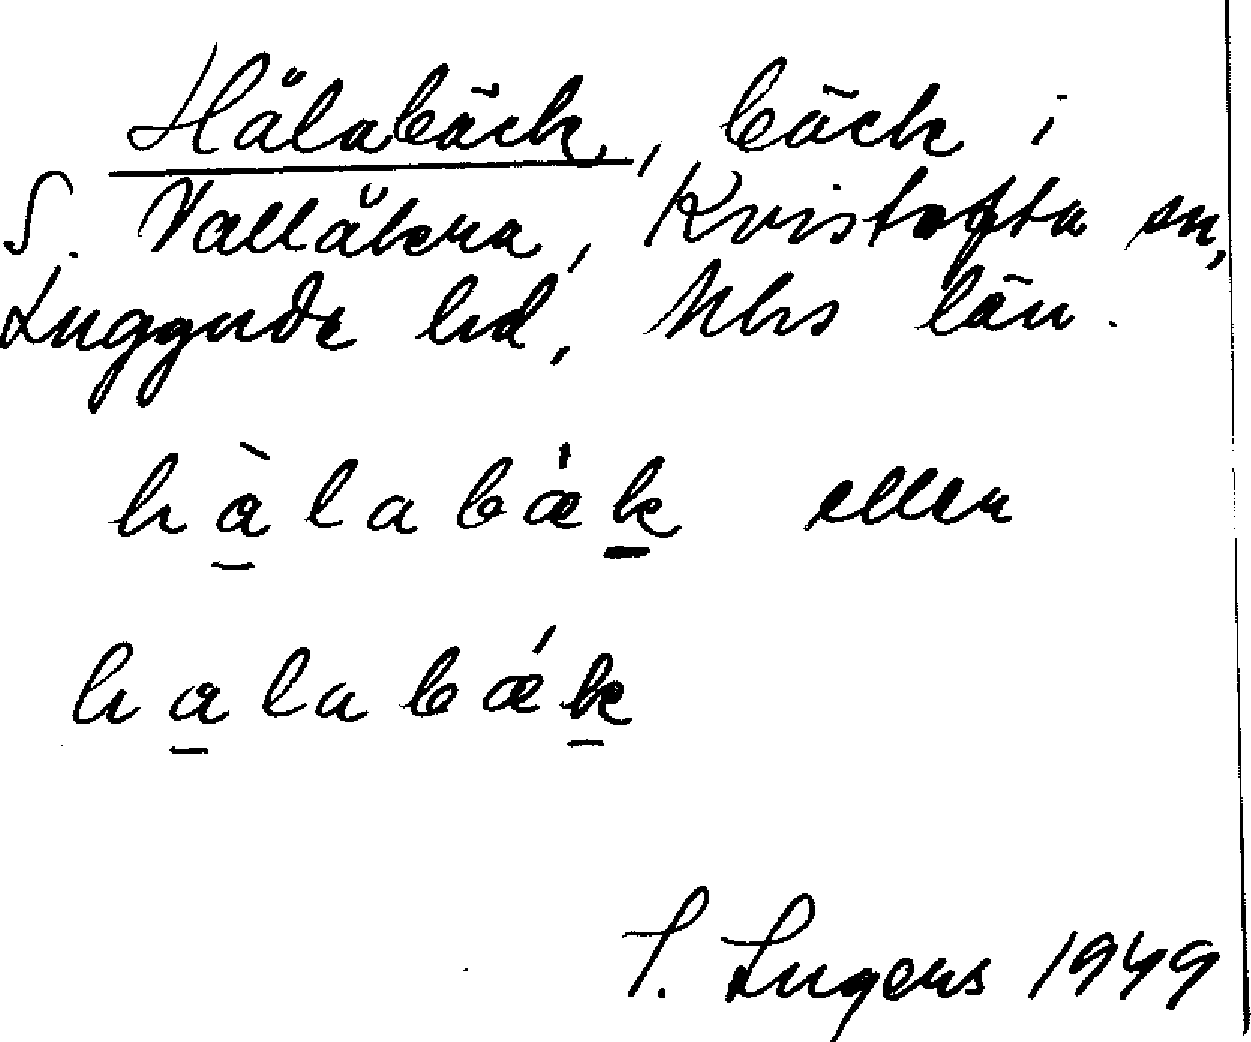 Hålabäck, bäck i
S. Vallåkra, Kvistofta sn,
Luggude hd, Mhs län.
hàlabǽk eller
halabǽk
S. Ingers 1949